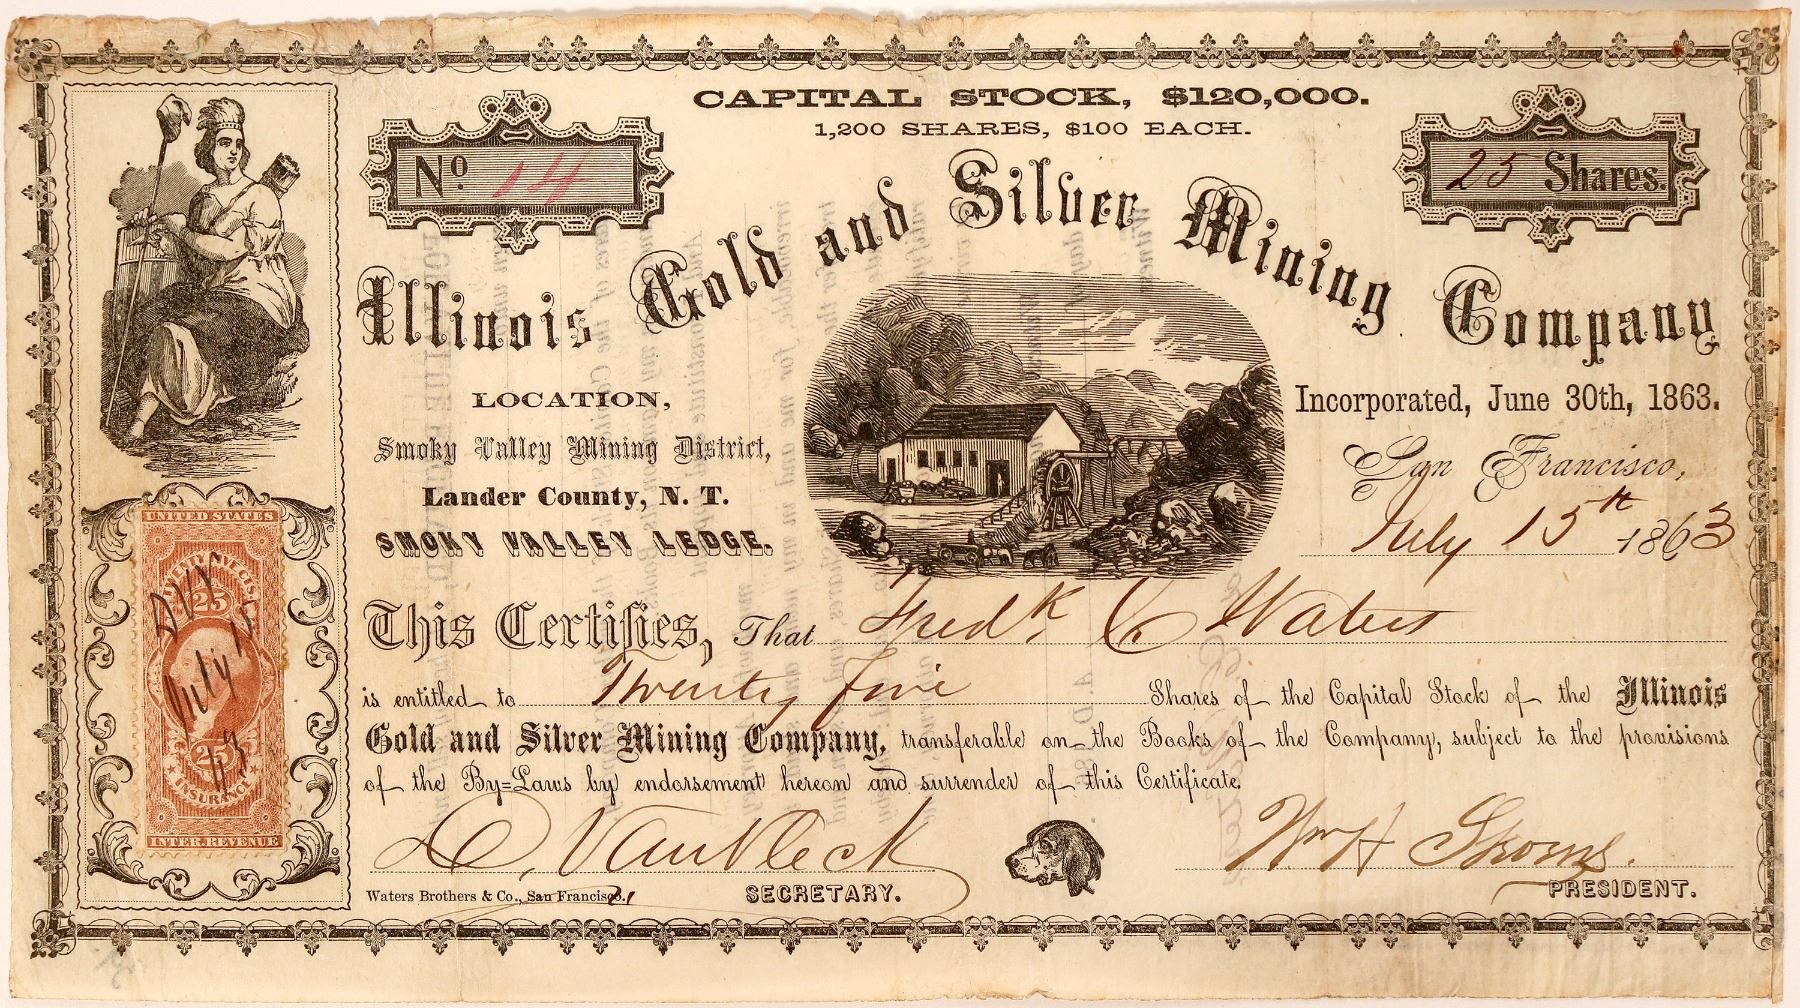 CAPITAL STOCK, $120,000.
1,200 SHARES, $100 EACH.
No. 14
25 Shares.
Illinois Gold and Silver Mining Company
Incorporated, June 30th, 1863.
LOCATION,
Smoky Valley Mining District,
Lander County, N. T.
SMOKY VALLEY LEDGE.
San Francisco,
July 15th 1863
This Certifies, That Fredk. C. Waters
is entitled to Twenty five Shares of the Capital Stock of the Illinois
Gold and Silver Mining Company, transferable on the Books of the Company, subject to the provisions
of the By=Laws by endorsement hereon and surrender of this Certificate.
D. VanVleck
SECRETARY.
Wm H
PRESIDENT.
Waters Brothers & Co., San Francisco.
UNITED STATES
25
DVV
July 15
63
25
INSURANCE
INTER. REVENUE